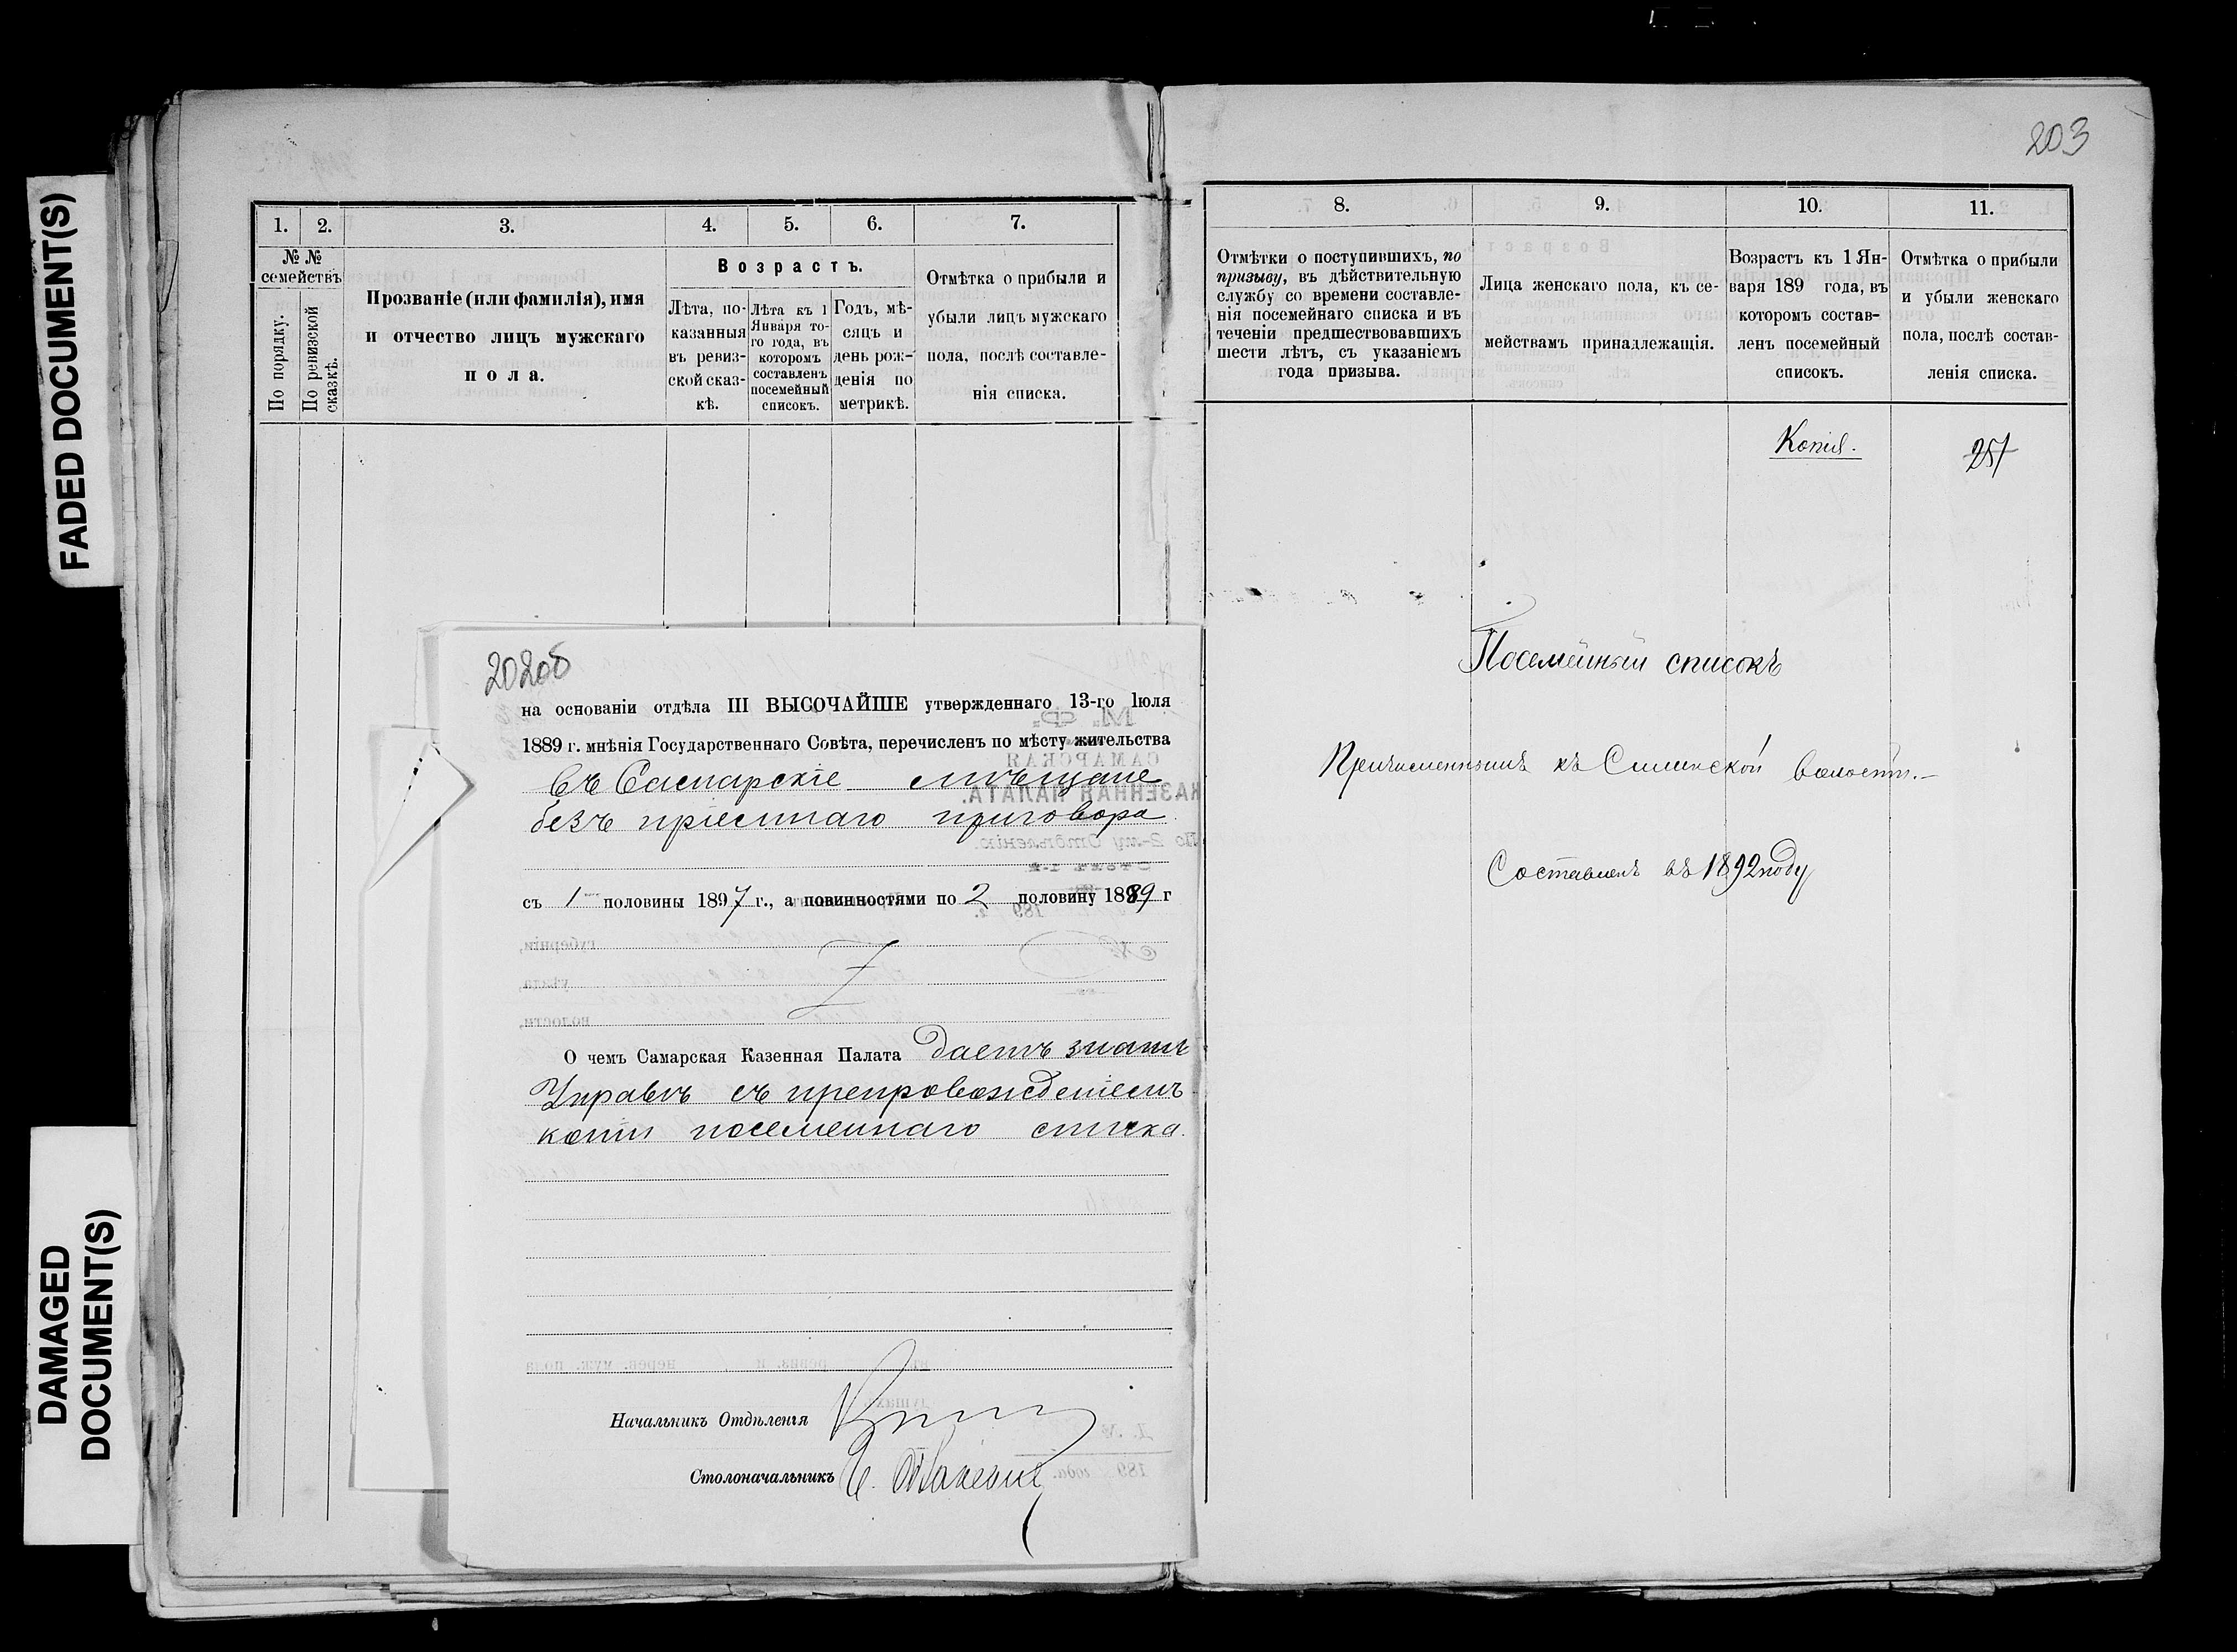 FADED DOCUMENT(S)
DAMAGED
DOCUMENT(S)
1.
2.
3.
4.
5.
6.
7.
№ №
семействъ
По порядку.
По ревизской
сказкѣ.
Прозваніе (или фамилія), имя
и отчество лицъ мужскаго
пола.
Возрастъ.
Лѣта, по-
казанныя
въ ревиз-
ской сказ-
кѣ.
Лѣта къ 1
Января то-
го года, въ
которомъ
составленъ
посемейный
списокъ.
Годъ, мѣ-
сяцъ и
день рож-
денія по
метрикѣ.
Отмѣтка о прибыли и
убыли лицъ мужскаго
пола, послѣ составле-
нія списка.
202об
на основаніи отдѣла III ВЫСОЧАЙШЕ утвержденнаго 13-го Іюля
1889 г. мнѣнія Государственнаго Совѣта, перечисленъ по мѣсту жительства
въ Самарскіе мѣщане
безъ пріемнаго приговора
съ 1 половины 1897 г., а повинностями по 2 половину 1899 г
О чемъ Самарская Казенная Палата даетъ знать
Управѣ съ препровожденіемъ
копіи посемейнаго списка.
Начальникъ Отдѣленія
Столоначальникъ
203
8.
9.
10.
11.
Отмѣтки о поступившихъ, по
призыву, въ дѣйствительную
службу со времени составле-
нія посемейнаго списка и въ
теченіи предшествовавшихъ
шести лѣтъ, съ указаніемъ
года призыва.
Лица женскаго пола, къ се-
мействамъ принадлежащія.
Возрастъ къ 1 Ян-
варя 189 года, въ
которомъ состав-
ленъ посемейный
списокъ.
Отмѣтка о прибыли
и убыли женскаго
пола, послѣ состав-
ленія списка.
Копія.
Посемейный списокъ
Причисленнымъ къ волости.
Составленъ въ 1892 году